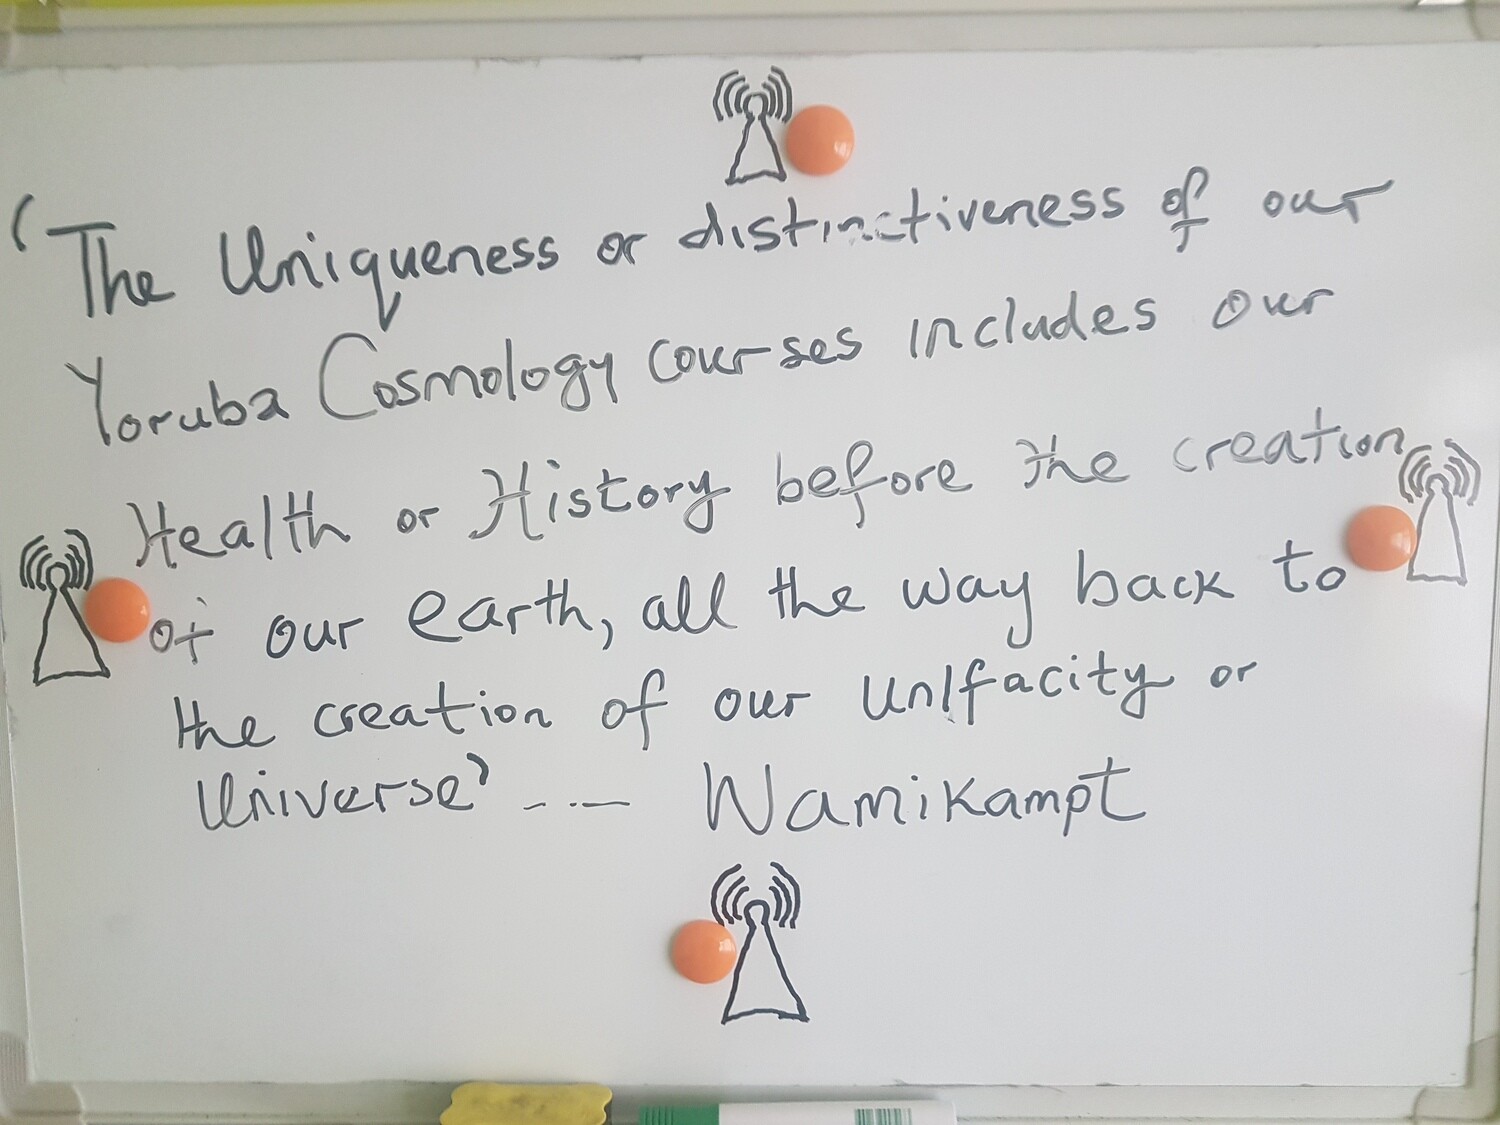 ‘The Uniqueness or distinctiveness of our
Yoruba Cosmology courses includes our
Health or History before the creation
of our earth, all the way back to
the creation of our Unifacity or
Universe’ -.— Wamikampt